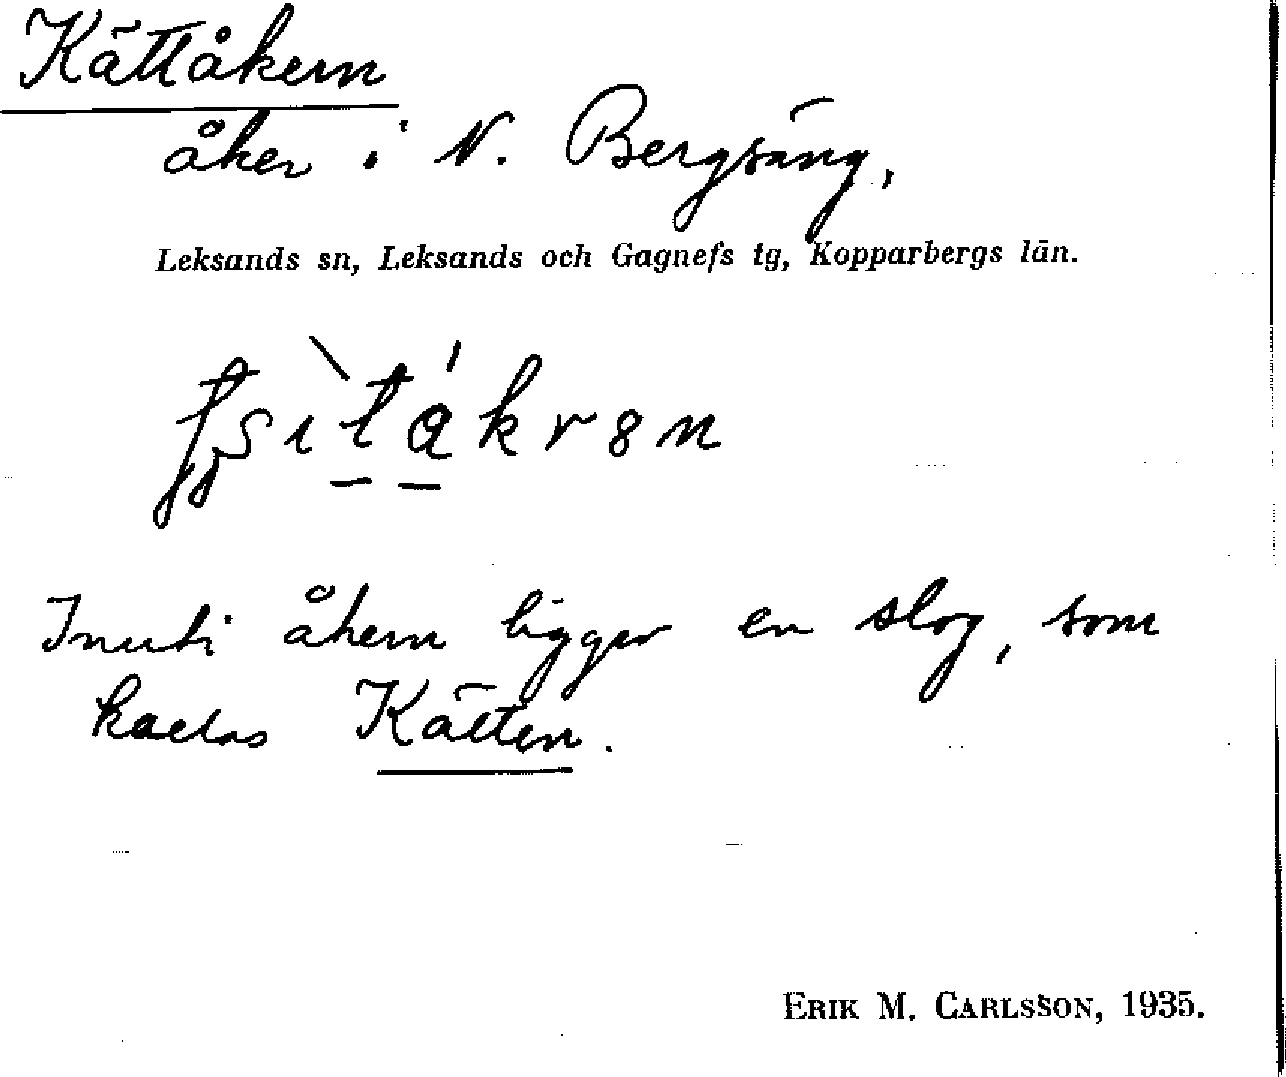 Kättåkern
åker i N. Bergsäng,
Leksands sn, Leksands och Gagnefs tg, Kopparbergs län.
Inuti åkern ligger en slog, som
kallas Kätten.
ERIK M. CARLSSON, 1935.